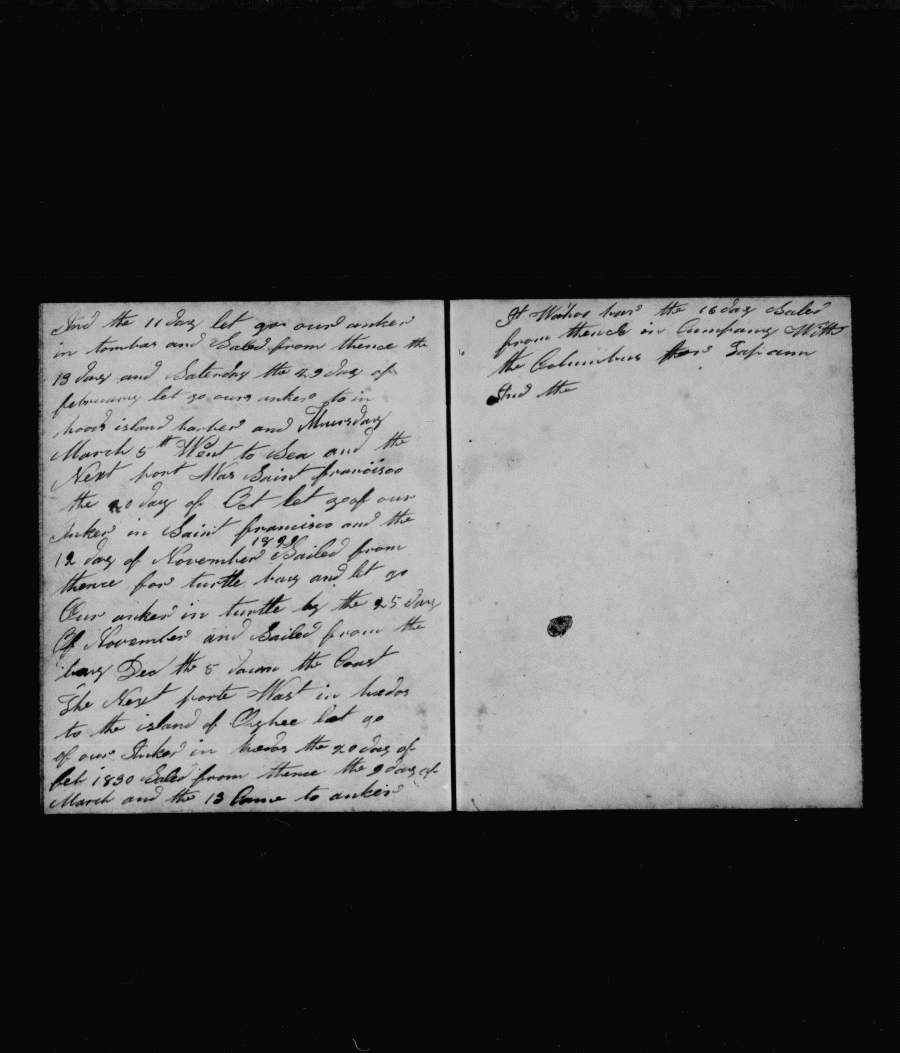 And the 11 day let go our anker
in tombas and Saled from thence the
13 day and Saterday the 29 day of
february let go ours anker in
hoods island harber and Thuersday
March 5th Went to Sea and the
Next port Was Saint francisco
the 20 day of Oct let go of our
Anker in Saint francisco and the
12 day of November 1829 Sailed from
thence for turtle bay and let go
Our anker in turtle by the 25 day
Of November and Sailed from the
bay Dec the 5 down the Coast
The Next porte Wast in
to the island of let go
of our Anker in the 20 day of
feb 1830 Saled from thence the 9 day of
March and the 13 Came to anker
At Wahoo the 16 day Saled
from thence in Cumpany With
the Columbus for Japann
And the